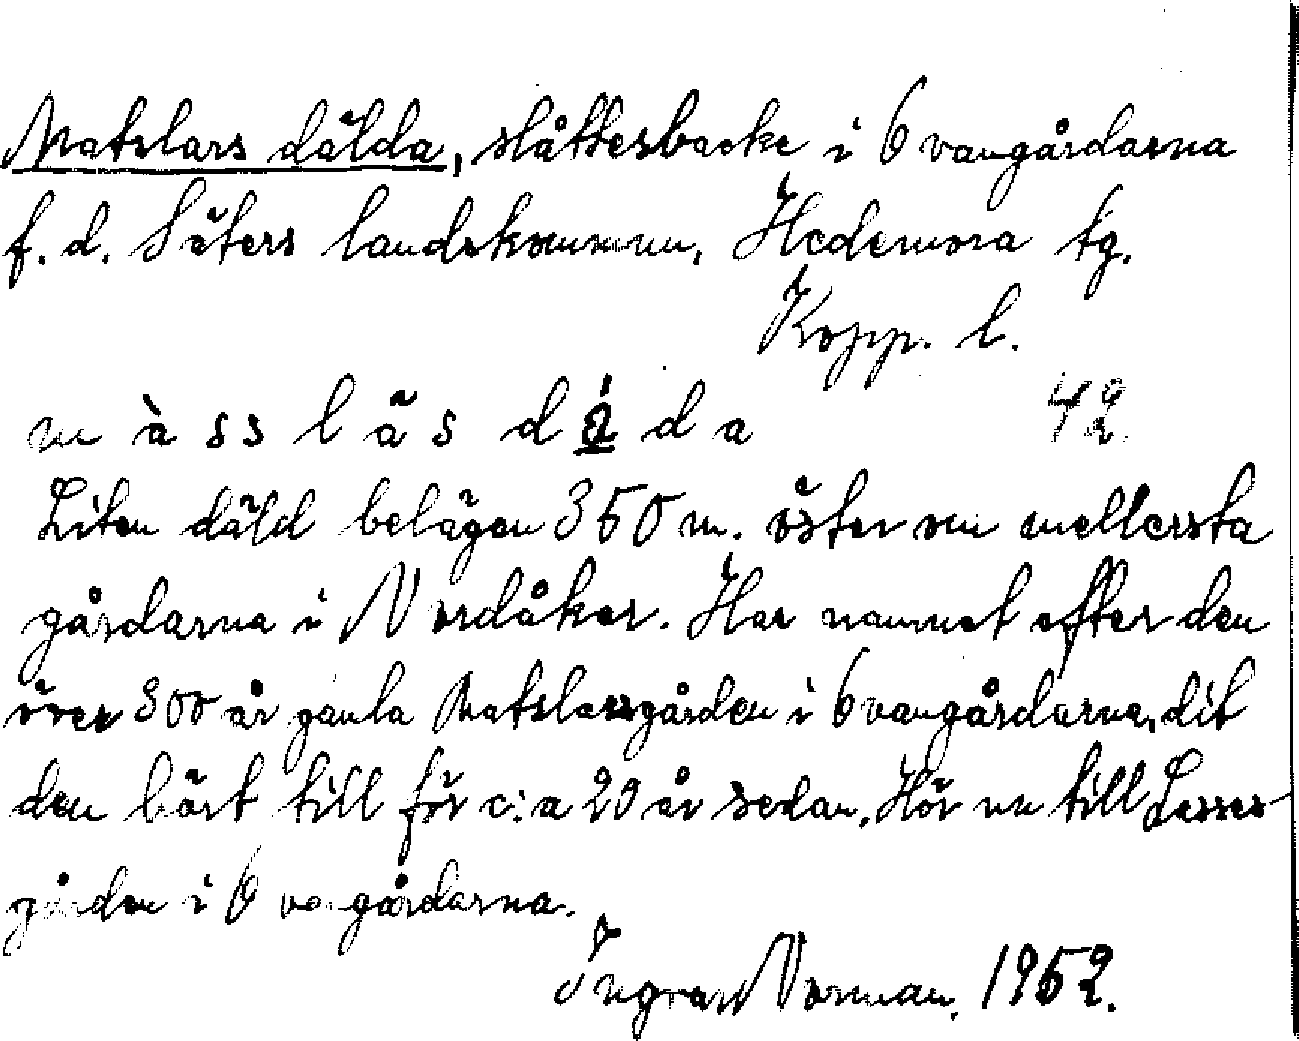 Matslars dälda, slåttesbacke i Ovangårdarna
f. d. Säters landskommun, Hedemora tg.
Kopp. l.
m à ss l ä s d á d a 42.
Liten däld belägen 350 m. öster om mellersta
gårdarna i Nordåker. Har namnet efter den
över 300 år gamla Matslarsgården i Ovangårdarna, dit
den hört till för c:a 20 år sedan. Hör nu till Lasses-
gården i Ovangårdarna.
Ingvar Norman. 1952.